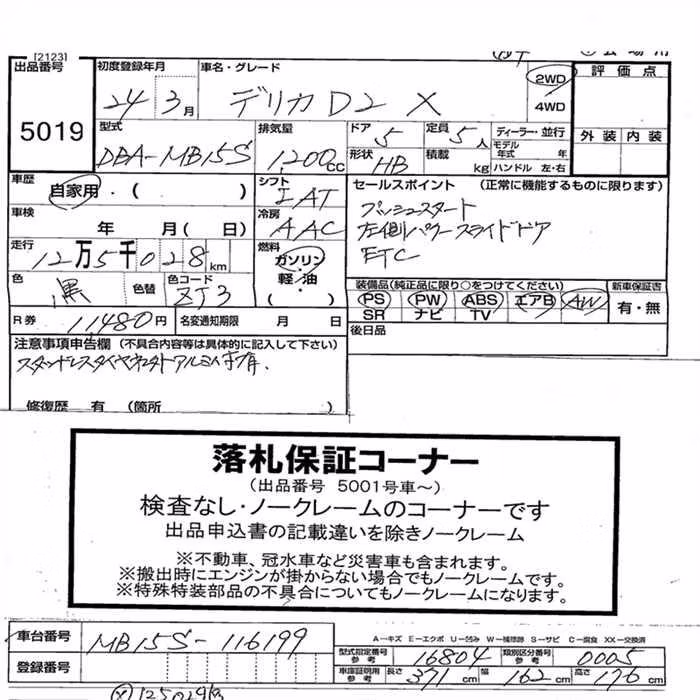 [2123]
出品番号
5019
初度登録年月
24年3月
車名・グレード
デリカD2 X
2WD
4WD
評価点
外装 内装
型式
DBA-MB15S
排気量
1200cc
ドア 5
定員 5人
形状 HB
積載 kg
ディーラー・並行
モデル年式 年
ハンドル 左・右
車歴
自家用・( )
シフト
IAT
セールスポイント (正常に機能するものに限ります)
プッシュスタート
左側パワースライドドア
ETC
車検
年 月( 日)
冷房
AAC
走行
12万5千028km
燃料
ガソリン
軽油
色
黒
色替
色コード
ZJ3
装備品(純正品に限り○をつけてください)
PS PW ABS エアB AW
SR ナビ TV
新車保証書
有・無
R券 11480円
名変通知期限 月 日
後日品
注意事項申告欄 (不具合内容等は具体的に記入して下さい)
修復歴 有 (箇所 )
落札保証コーナー
(出品番号 5001号車~)
検査なし・ノークレームのコーナーです
出品申込書の記載違いを除きノークレーム
※不動車、冠水車など災害車も含まれます。
※搬出時にエンジンが掛からない場合でもノークレームです。
※特殊特装部品の不具合についてもノークレームになります。
A−キズ E−エクボ U−凹み W−補修跡 S−サビ C−腐食 XX−交換済
車台番号
MB15S-116199
型式指定番号 参考
16804
類別区分番号 参考
0005
登録番号
車庫証明用 参考
長さ 371cm
幅 162cm
高さ 176cm